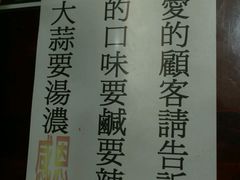 愛的顧客請告訴
的口味要鹹要辣
大蒜要湯濃